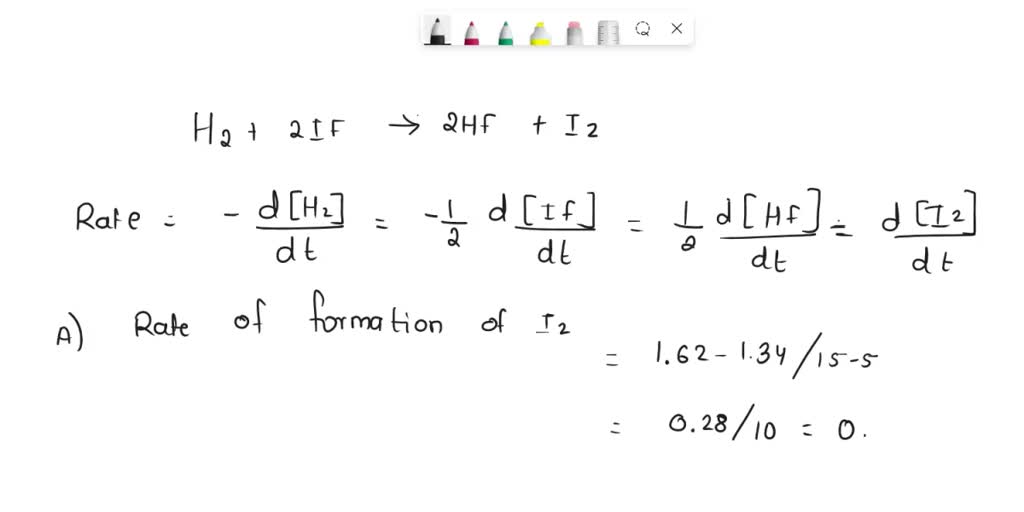 H2 + 2IF → 2Hf + I2
Rate = - d[H2]/dt = - 1/2 d[If]/dt = 1/2 d[Hf]/dt = d[I2]/dt
A) Rate of formation of I2
= 1.62 - 1.34 / 15-5
= 0.28/10 = 0.